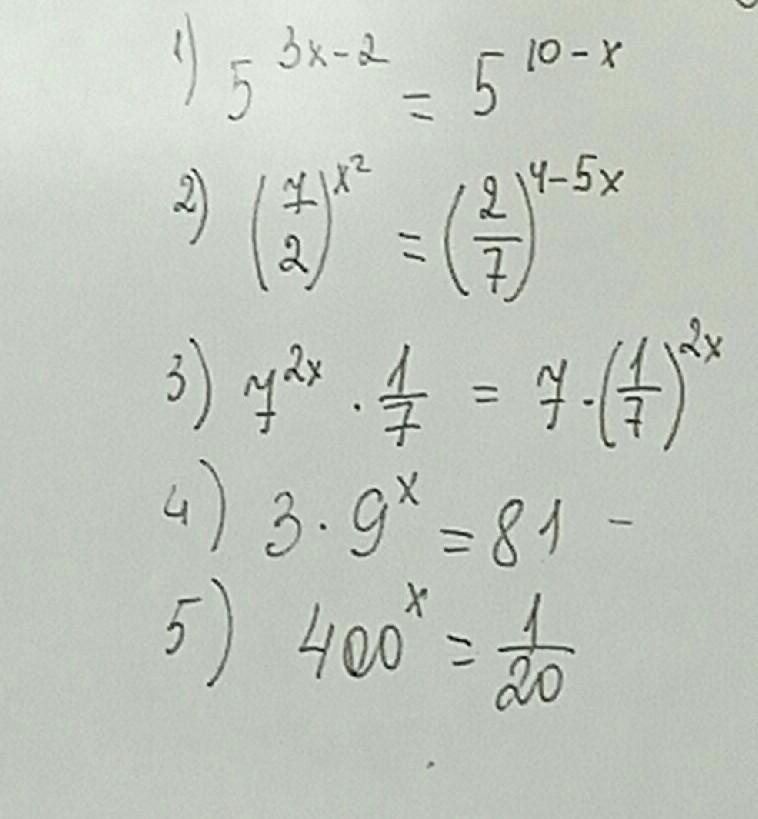 1) 5^(3x-2) = 5^(10-x)
2) (7/2)^(x²) = (2/7)^(4-5x)
3) 7^(2x) · 1/7 = 7·(1/7)^(2x)
4) 3 · 9^x = 81 -
5) 400^x = 1/20